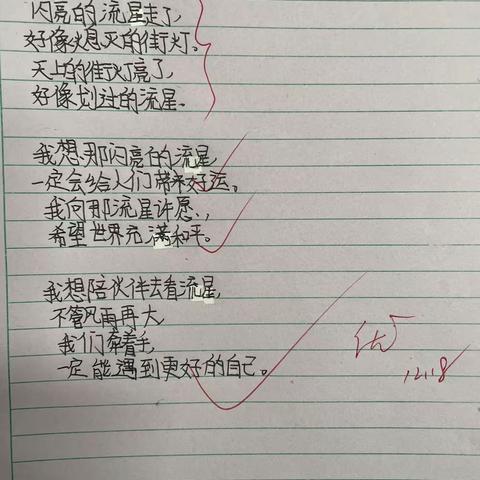 闪亮的流星走了,
好像熄灭的街灯。
天上的街灯亮了,
好像划过的流星.
我想那闪亮的流星,
一定会给人们带来好运。
我向那流星许愿,,
希望世界充满和平。
我想陪伙伴去看流星,
不管风雨再大,
我们牵着手,
一定能遇到更好的自己。
优
12.18